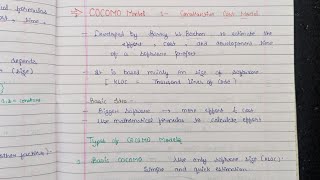 formulas
time.
depends
(size)
constant
other factors).
⇒ COCOMO Model :- Constructive Cost Model
- Developed by Barry W. Boehm, is estimate the
effort, cost, and development time
of a software project
- It is based mainly on size of software
(KLOC : Thousand lines of Code)
Basic idea -
- Bigger software → more effort & cost
- Use mathematical formulas to calculate effort
Types of COCOMO Models
Basic COCOMO - Use only software size (KLOC).
Simple and quick estimation